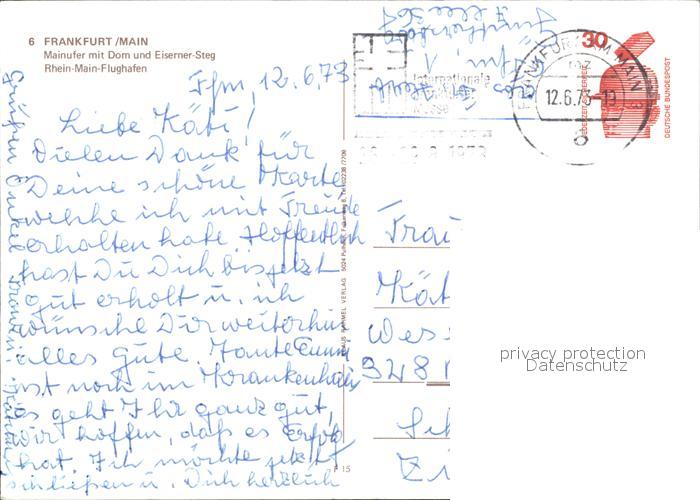 6 FRANKFURT/MAIN
Mainufer mit Dom und Eiserner-Steg
Rhein-Main-Flughafen
Ffm, 12.6.73
Liebe Käti!
Vielen Dank für
Deine schöne Karte
welche ich mit Freude
erhalten habe. Hoffentlich
hast Du Dich bis jetzt
gut erholt u. ich
wünsche Dir weiterhin
alles Gute. Tante
ist noch im Krankenhaus
es geht Ihr ganz gut,
wir hoffen, daß es Erfolg
hat. Ich möchte jetzt
schließen u. Dich herzlich
grüßen Onkel
VERLAG
F 15
Internationale
FRANKFURT AM MAIN
12.6.73-19
30
DEUTSCHE BUNDESPOST
Frau
Kät
Wes
348
privacy protection
Datenschutz